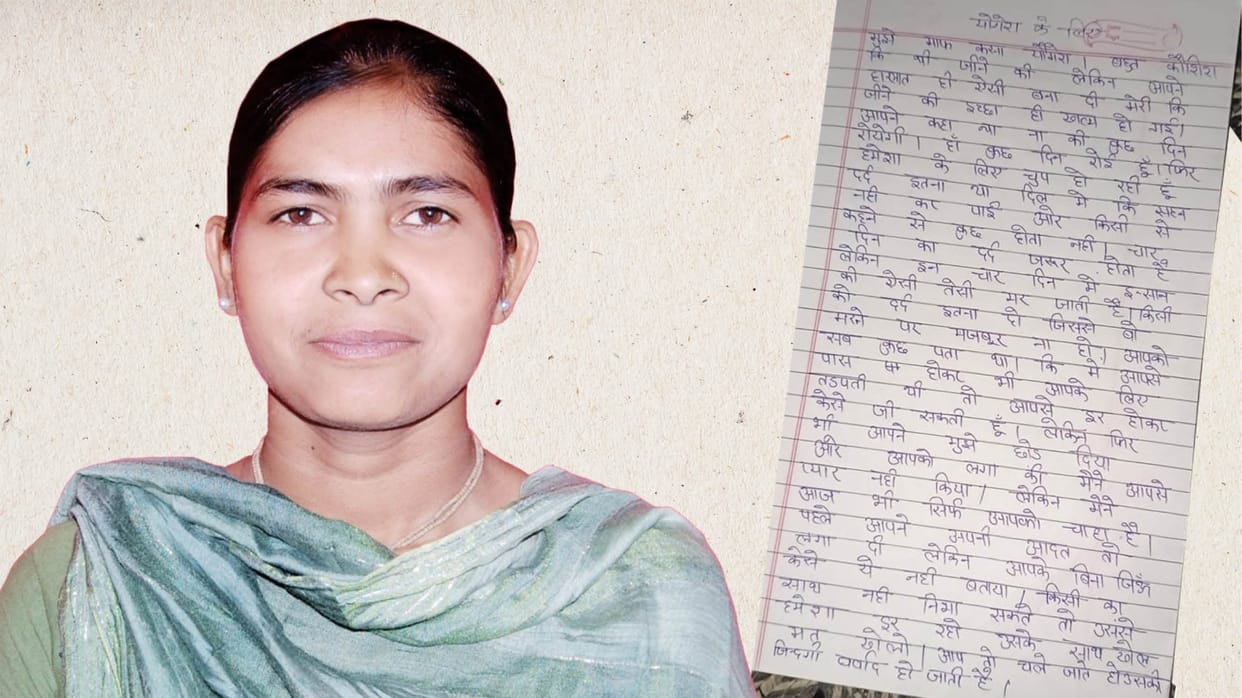 योगेश के लिए
मुझे माफ करना योगेश। बहुत कोशिश
कि थी जीने की लेकिन आपने
हालात ही ऐसी बना दी मेरी कि
जीने की इच्छा ही खत्म हो गई।
आपने कहा था ना की कुछ दिन
रोयेगी। हाँ कुछ दिन रोई हूँ। फिर
हमेशा के लिए चुप हो रही हूँ
दर्द इतना था दिल मे कि सहन
नही कर पाई और किसी से
कहने से कुछ होता नही। चार
दिन का दर्द जरूर होता है
लेकिन इन चार दिन मे इन्सान
की ऐसी तेसी मर जाती है। किसी
को दर्द इतना दो जिससे वो
मरने पर मजबूर ना हो। आपको
सब कुछ पता था। कि मे आपसे
पास होकर भी आपके लिए
तडपती थी तो आपसे दूर होकर
केसे जी सकती हूँ। लेकिन फिर
भी आपने मुझे छोड दिया
और आपको लगा की मैने आपसे
प्यार नही किया। लेकिन मैने
आज भी सिर्फ आपको चाहा है।
पहले आपने अपनी आदत तो
लगा दी लेकिन आपके बिना जिऊँ
केसे ये नही बताया। किसी का
साथ नही निभा सकते तो उससे
हमेशा दूर रहो उसके साथ खेल
मत खेलो। आप तो चले जाते हो उसकी
जिन्दगी बर्बाद हो जाती है।